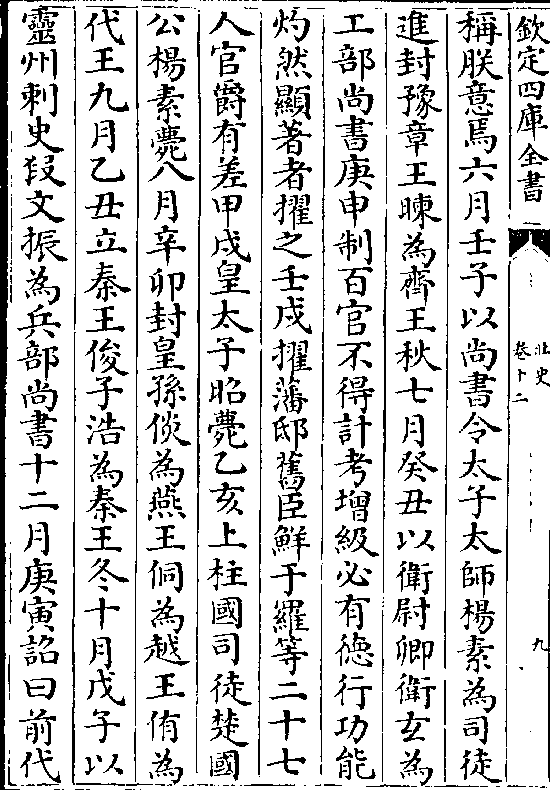 欽定四庫全書
北史
卷十二
九
稱朕意焉六月壬子以尚書令太子太師楊素為司徒
進封豫章王暕為齊王秋七月癸丑以衛尉卿衛玄為
工部尚書庚申制百官不得計考增級必有徳行功能
灼然顯著者擢之壬戌擢藩邸舊臣鮮于羅等二十七
人官爵有差甲戌皇太子昭薨乙亥上柱國司徒楚國
公楊素薨八月辛卯封皇孫倓為燕王侗為越王侑為
代王九月乙丑立秦王俊子浩為秦王冬十月戊子以
靈州刺史段文振為兵部尚書十二月庚寅詔曰前代